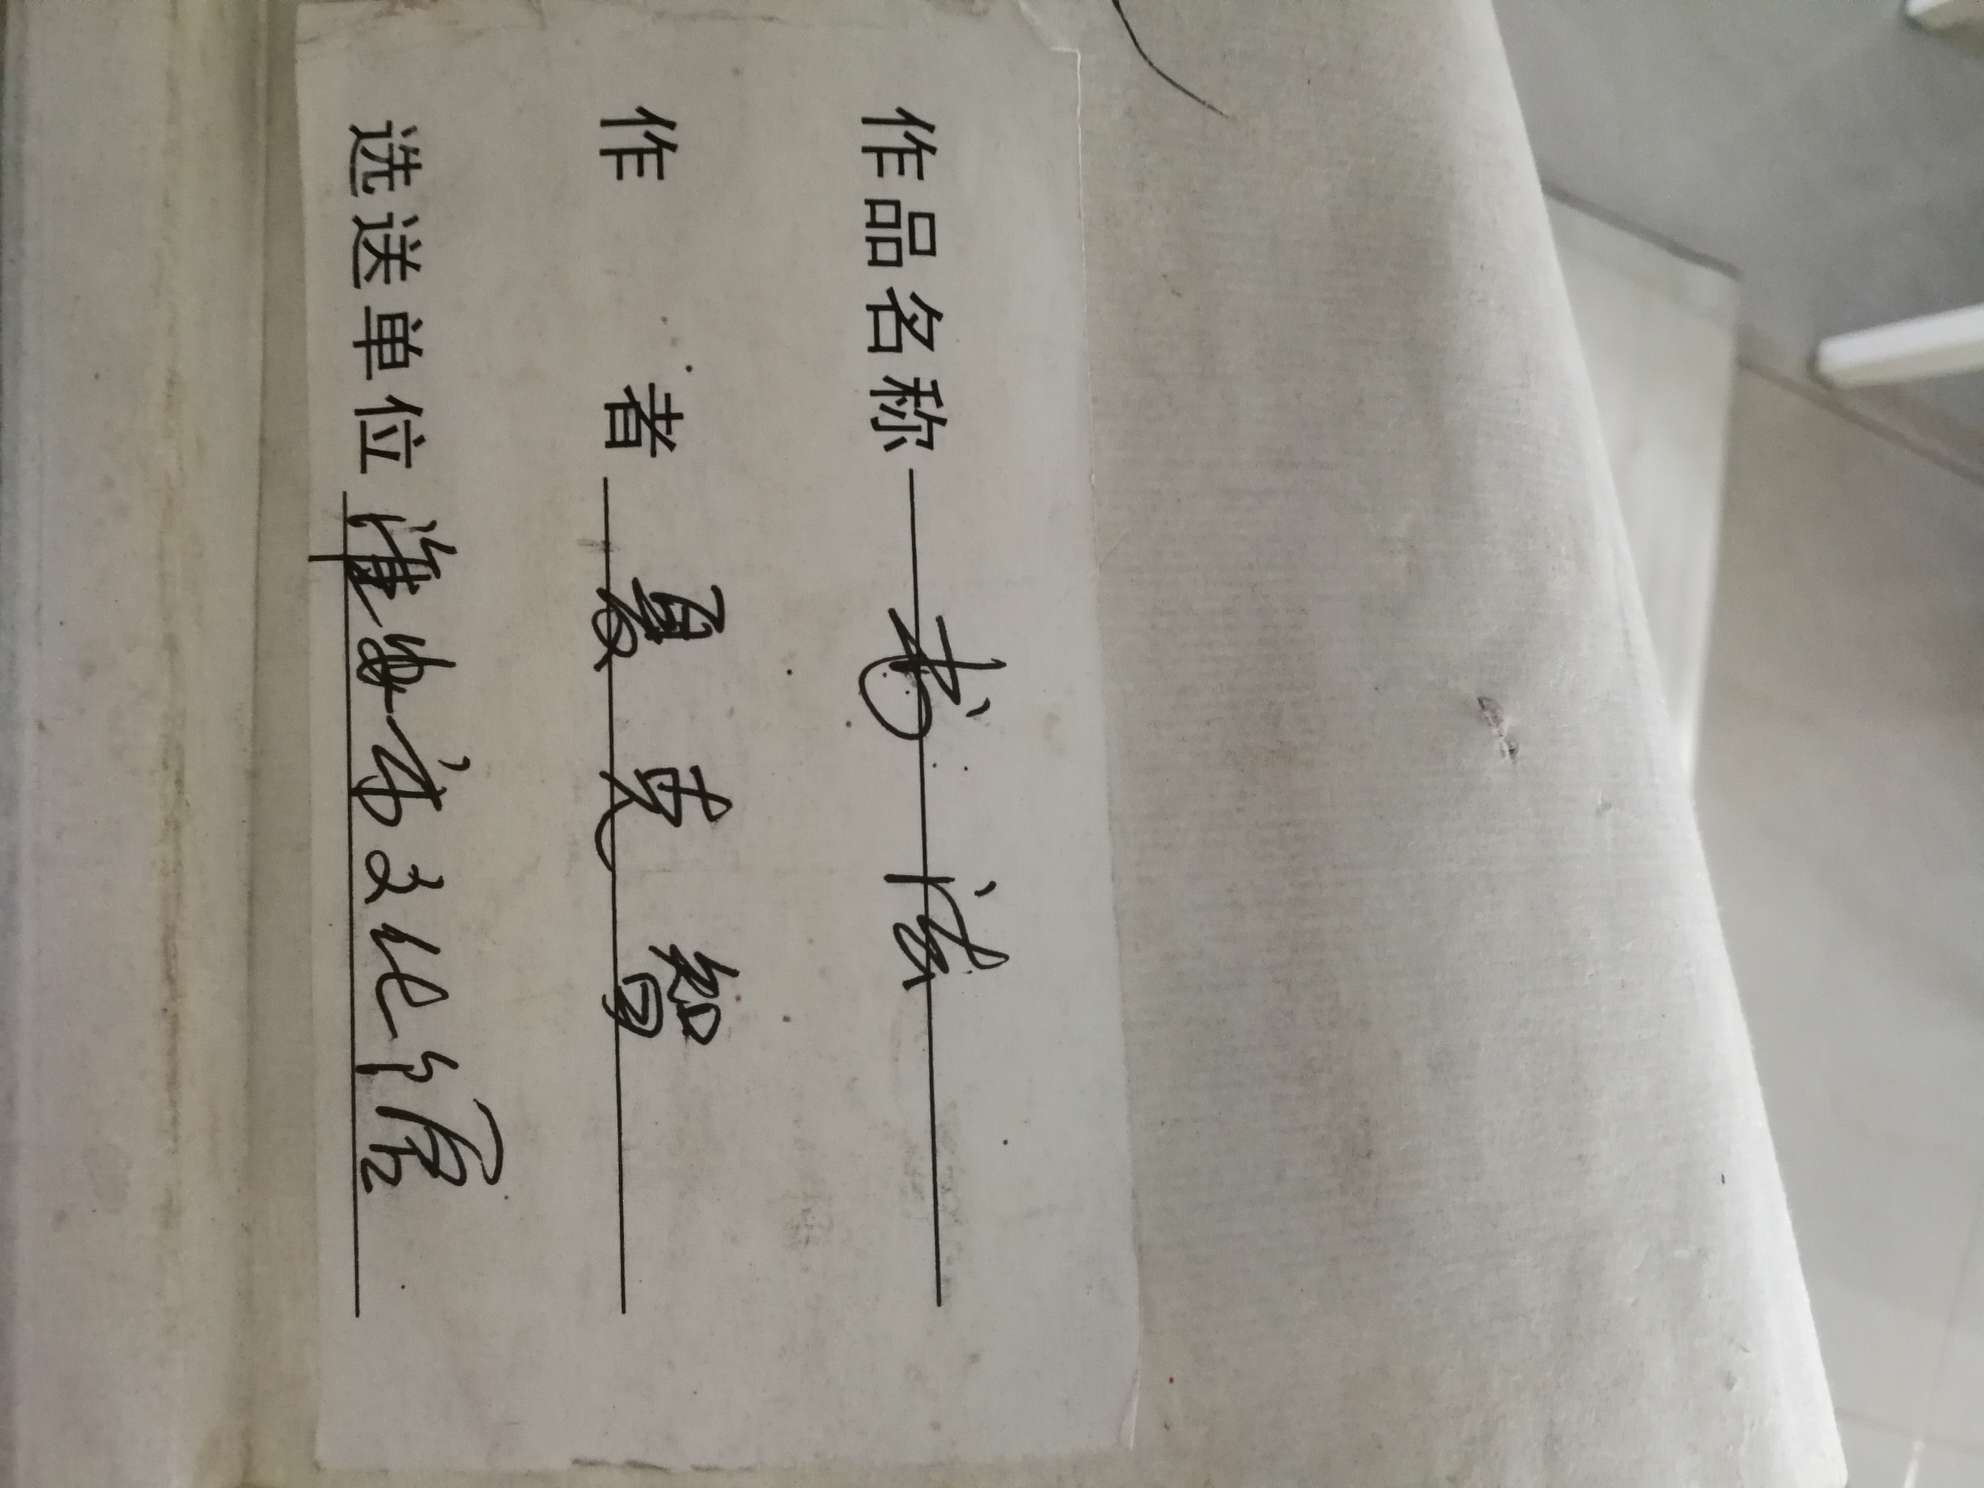 作品名称 书法
作者 夏克智
选送单位 淮安市文化馆